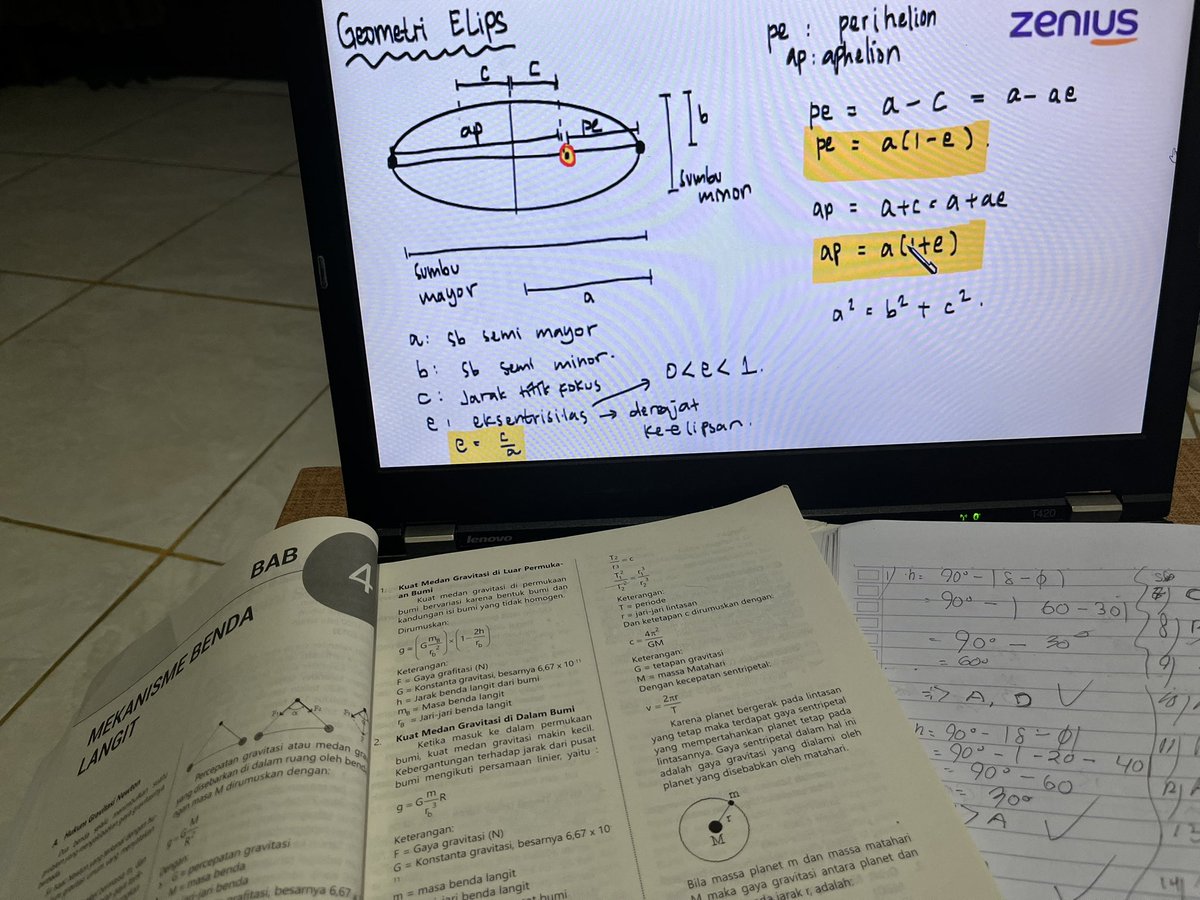 Geometri Elips
zenius
pe : perihelion
ap : aphelion
c c
ap pe
b
sumbu
minor
pe = a - c = a - ae
pe = a(1-e).
ap = a+c = a+ae
ap = a(1+e)
a² = b² + c².
sumbu
mayor
a
a: sb semi mayor
b: sb semi minor.
c: Jarak titik fokus
0<e<1.
e: → derajat
ke-elipsan.
e = c/a
lenovo
T420
BAB
4
MEKANISME BENDA
LANGIT
A. Hukum Gravitasi Newton
Percepatan gravitasi atau medan
yang disebarkan di dalam ruang oleh
masa M dirumuskan dengan:
g = G M/R²
Dengan:
G = percepatan gravitasi
M = masa benda
jari-jari benda
gravitasi, besarnya 6,67
1. Kuat Medan Gravitasi di Luar Permuka-
an Bumi
Kuat medan gravitasi di permukaan
bumi bervariasi karena bentuk bumi dan
kandungan isi bumi yang tidak homogen.
Dirumuskan:
Keterangan:
F = Gaya grafitasi (N)
G = Konstanta gravitasi, besarnya 6,67 x 10
h = Jarak benda langit dari bumi
= Masa benda langit
= Jari-jari benda langit
2. Kuat Medan Gravitasi di Dalam Bumi
Ketika masuk ke dalam permukaan
bumi, kuat medan gravitasi makin kecil.
Kebergantungan terhadap jarak dari pusat
bumi mengikuti persamaan linier, yaitu :
Keterangan:
F = Gaya gravitasi (N)
G = Konstanta gravitasi, besarnya 6,67 x 10
m = masa benda langit
jari benda langit
bumi
Keterangan:
T = periode
r = jari-jari lintasan
Dan ketetapan c dirumuskan dengan:
c = 4π²/GM
Keterangan:
G = tetapan gravitasi
M = massa Matahari
Dengan kecepatan sentripetal:
v = 2πr/T
Karena planet bergerak pada lintasan
yang tetap maka terdapat gaya sentripetal
yang mempertahankan planet tetap pada
lintasannya. Gaya sentripetal dalam hal ini
adalah gaya gravitasi yang dialami oleh
planet yang disebabkan oleh matahari.
m
r
M
Bila massa planet m dan massa matahari
M maka gaya gravitasi antara planet dan
jarak r, adalah:
h = 90° - |δ - φ|
= 90° - | 60 - 30|
= 90° - 30°
= 60°
=> A, D ✓
h = 90° - |δ - φ|
= 90° - |-20 - 40
= 90° - 60
= 30°
> A ✓